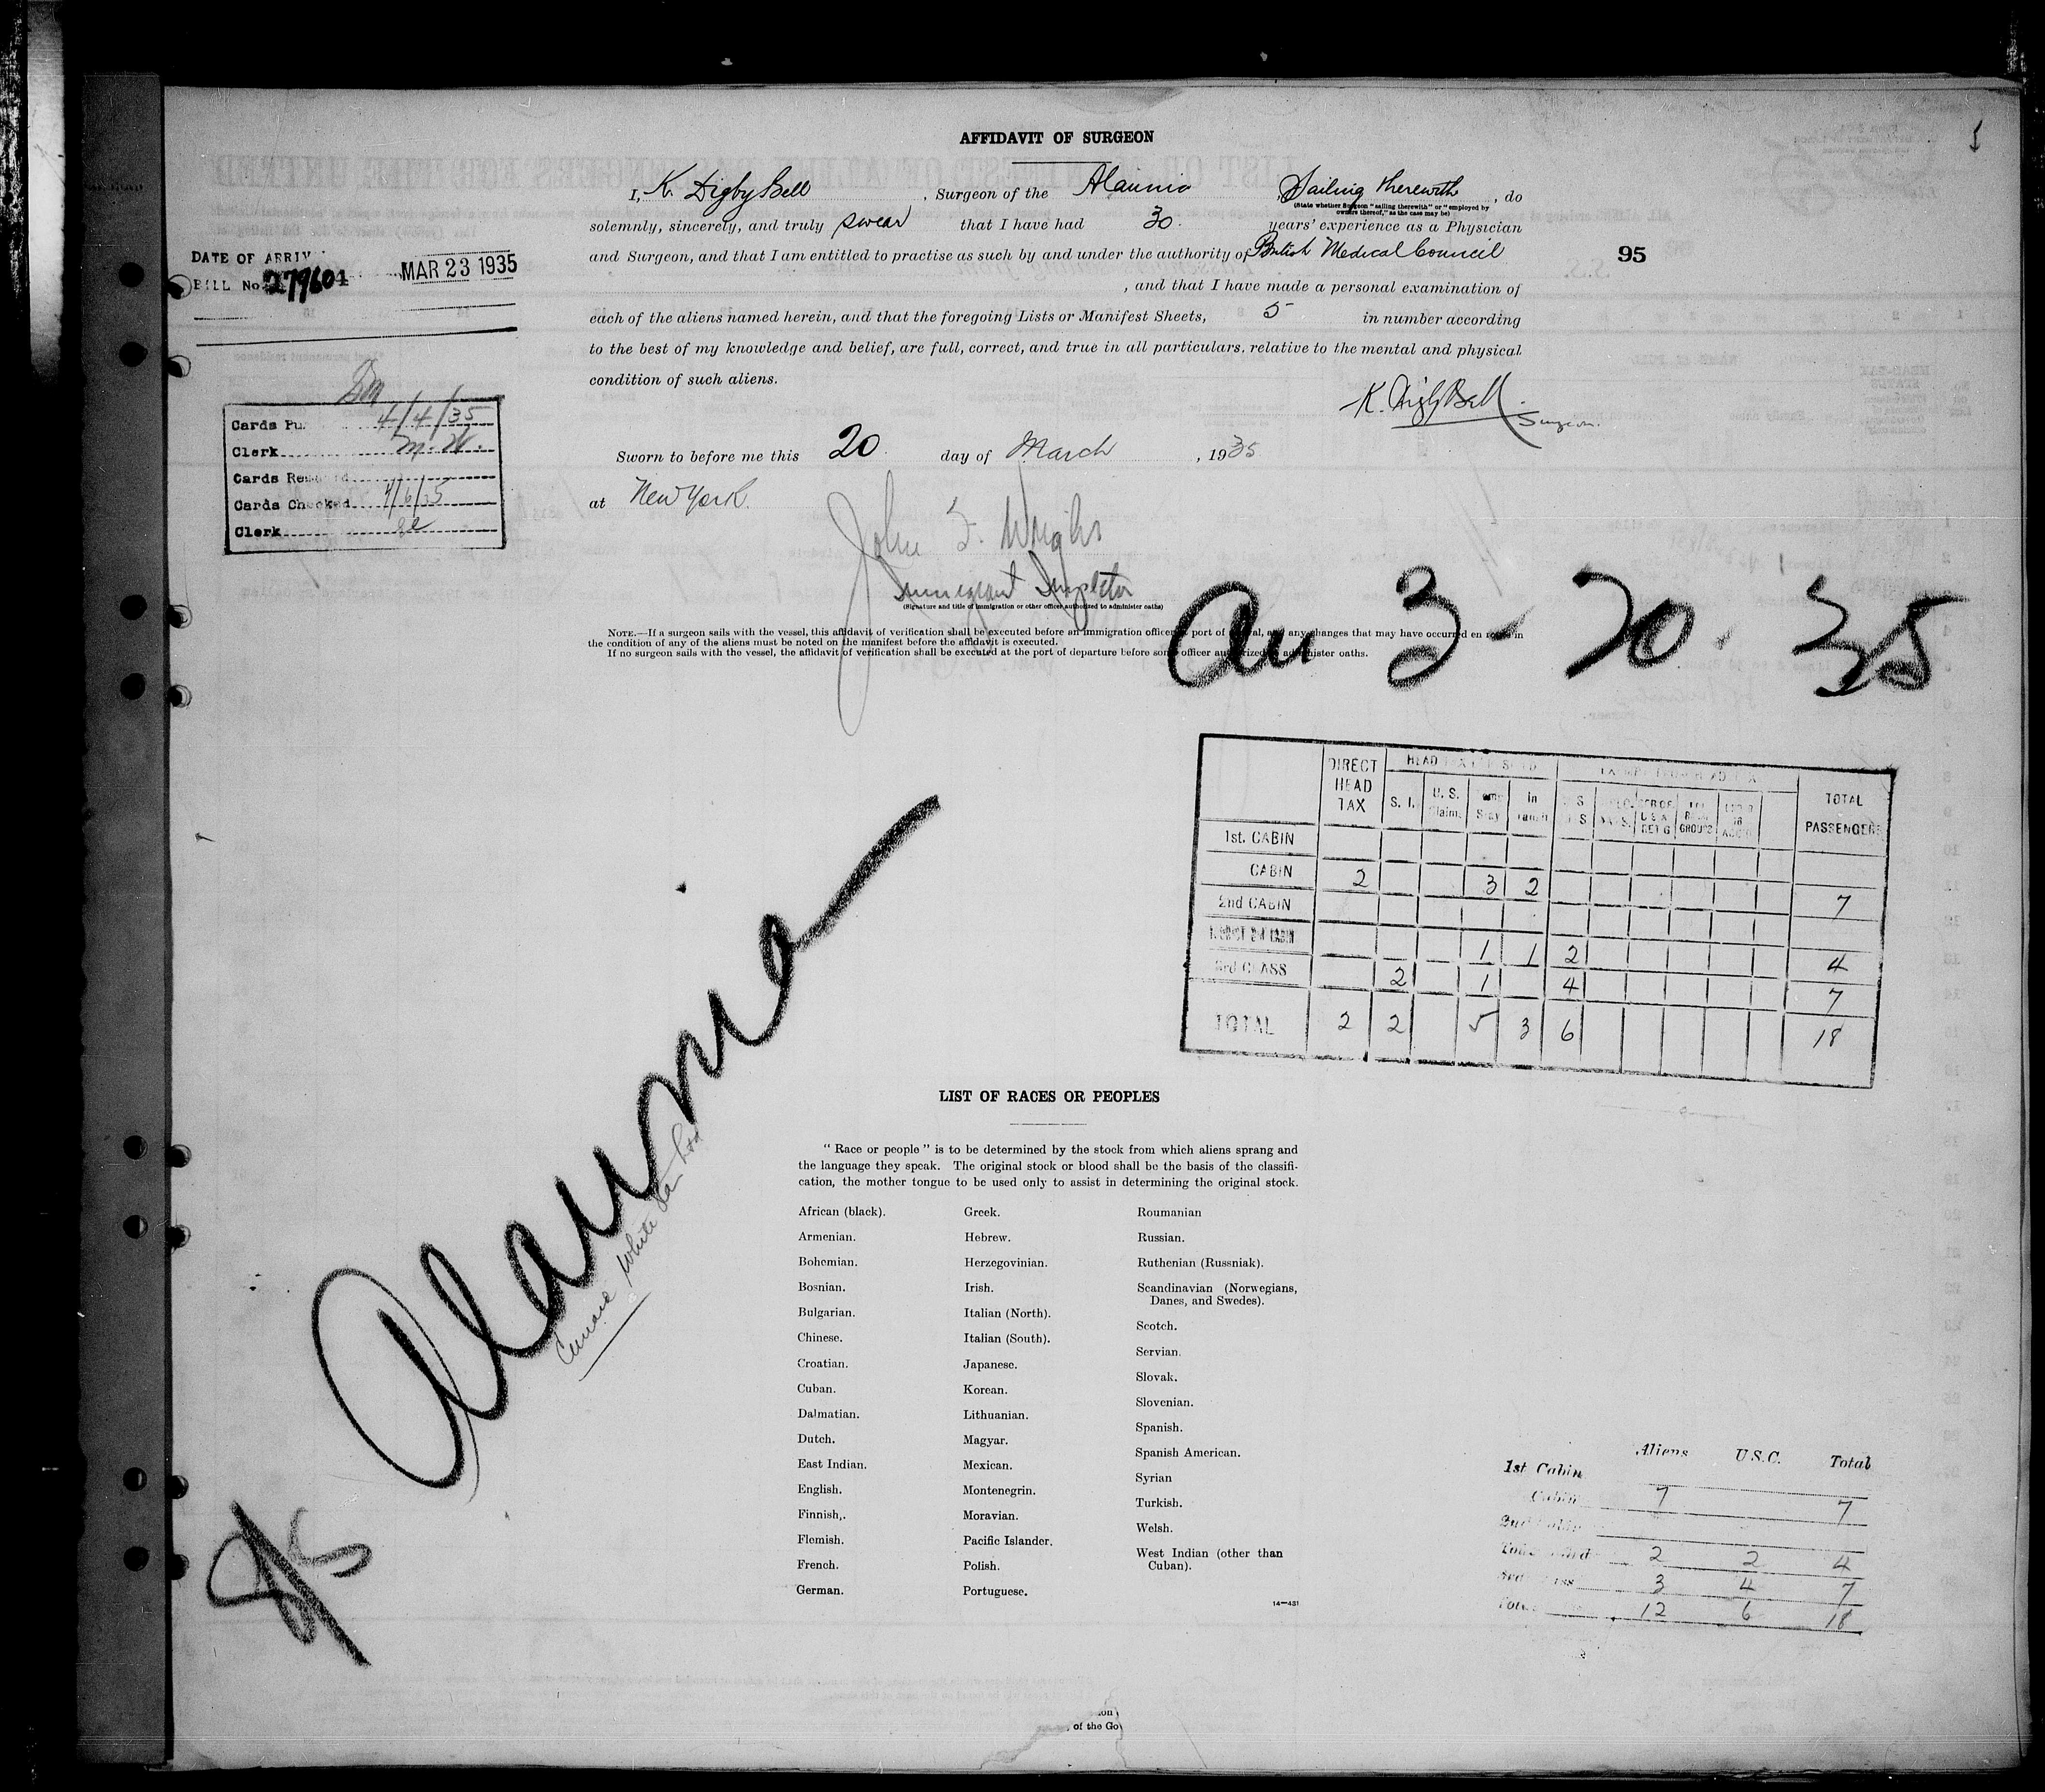 AFFIDAVIT OF SURGEON
I, K. Digby Bell, Surgeon of the Alaunia, Sailing therewith, do
(State whether Surgeon "sailing therewith" or "employed by
owners thereof," as the case may be)
solemnly, sincerely, and truly swear that I have had 30 years' experience as a Physician
and Surgeon, and that I am entitled to practise as such by and under the authority of British Medical Council
, and that I have made a personal examination of
each of the aliens named herein, and that the foregoing Lists or Manifest Sheets, 5 in number according
to the best of my knowledge and belief, are full, correct, and true in all particulars, relative to the mental and physical
condition of such aliens.
K. Digby Bell
Surgeon.
Sworn to before me this 20 day of March, 1935
at New York.
John F. Wright
Immigrant Inspector
(Signature and title of immigration or other officer authorized to administer oaths)
NOTE.—If a surgeon sails with the vessel, this affidavit of verification shall be executed before an immigration officer port of any changes that may have occurred en in
the condition of any of the aliens must be noted on the manifest before the affidavit is executed.
If no surgeon sails with the vessel, the affidavit of verification shall be executed at the port of departure before some officer authorized to administer oaths.
95
DATE OF ARRIV
MAR 23 1935
BILL No. 279604
Cards Pu 4/4/35
Clerk M.W.
Cards
Cards Checked 4/6/35
Clerk
Arr 3-20.35
DIRECT HEAD TAX
HEAD
S. I.
U. S. Claim.
Temp Stay
in Transit
TOTAL PASSENGERS
1st. CABIN
CABIN 2 3 2 7
2nd CABIN
1 1 2 4
3rd CLASS 2 1 4 7
TOTAL 2 2 5 3 6 18
Alaunia
Cunard White Star Ltd
LIST OF RACES OR PEOPLES
"Race or people" is to be determined by the stock from which aliens sprang and
the language they speak. The original stock or blood shall be the basis of the classifi-
cation, the mother tongue to be used only to assist in determining the original stock.
African (black).
Armenian.
Bohemian.
Bosnian.
Bulgarian.
Chinese.
Croatian.
Cuban.
Dalmatian.
Dutch.
East Indian.
English.
Finnish,.
Flemish.
French.
German.
Greek.
Hebrew.
Herzegovinian.
Irish.
Italian (North).
Italian (South).
Japanese.
Korean.
Lithuanian.
Magyar.
Mexican.
Montenegrin.
Moravian.
Pacific Islander.
Polish.
Portuguese.
Roumanian
Russian.
Ruthenian (Russniak).
Scandinavian (Norwegians,
Danes, and Swedes).
Scotch.
Servian.
Slovak.
Slovenian.
Spanish.
Spanish American.
Syrian
Turkish.
Welsh.
West Indian (other than
Cuban).
14—431
Aliens U.S.C. Total
1st Cabin
Cabin 7 7
2nd Cabin
2 2 4
3rd Class 3 4 7
Total 12 6 18
of the Go